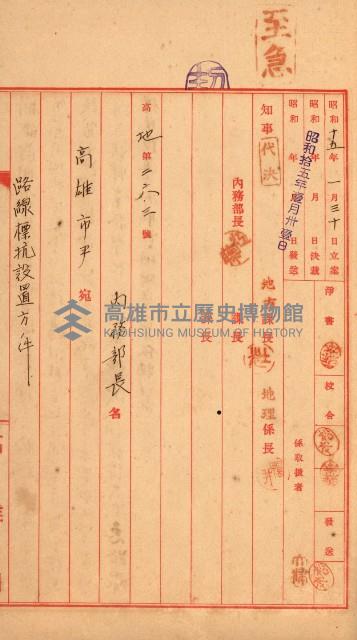 至急
昭和十五年一月三十日立案
昭和 年 月 日決裁
昭和 年 月 日發送
昭和拾五年壹月卅壹日
淨書
校合
發送
係取扱者
知事代決
地方課長
地理係長
內務部長
課長
課長
高地第二六三號
內務部長名
高雄市尹宛
路線標抗設置方ノ件
高雄市立歷史博物館
KAOHSIUNG MUSEUM OF HISTORY